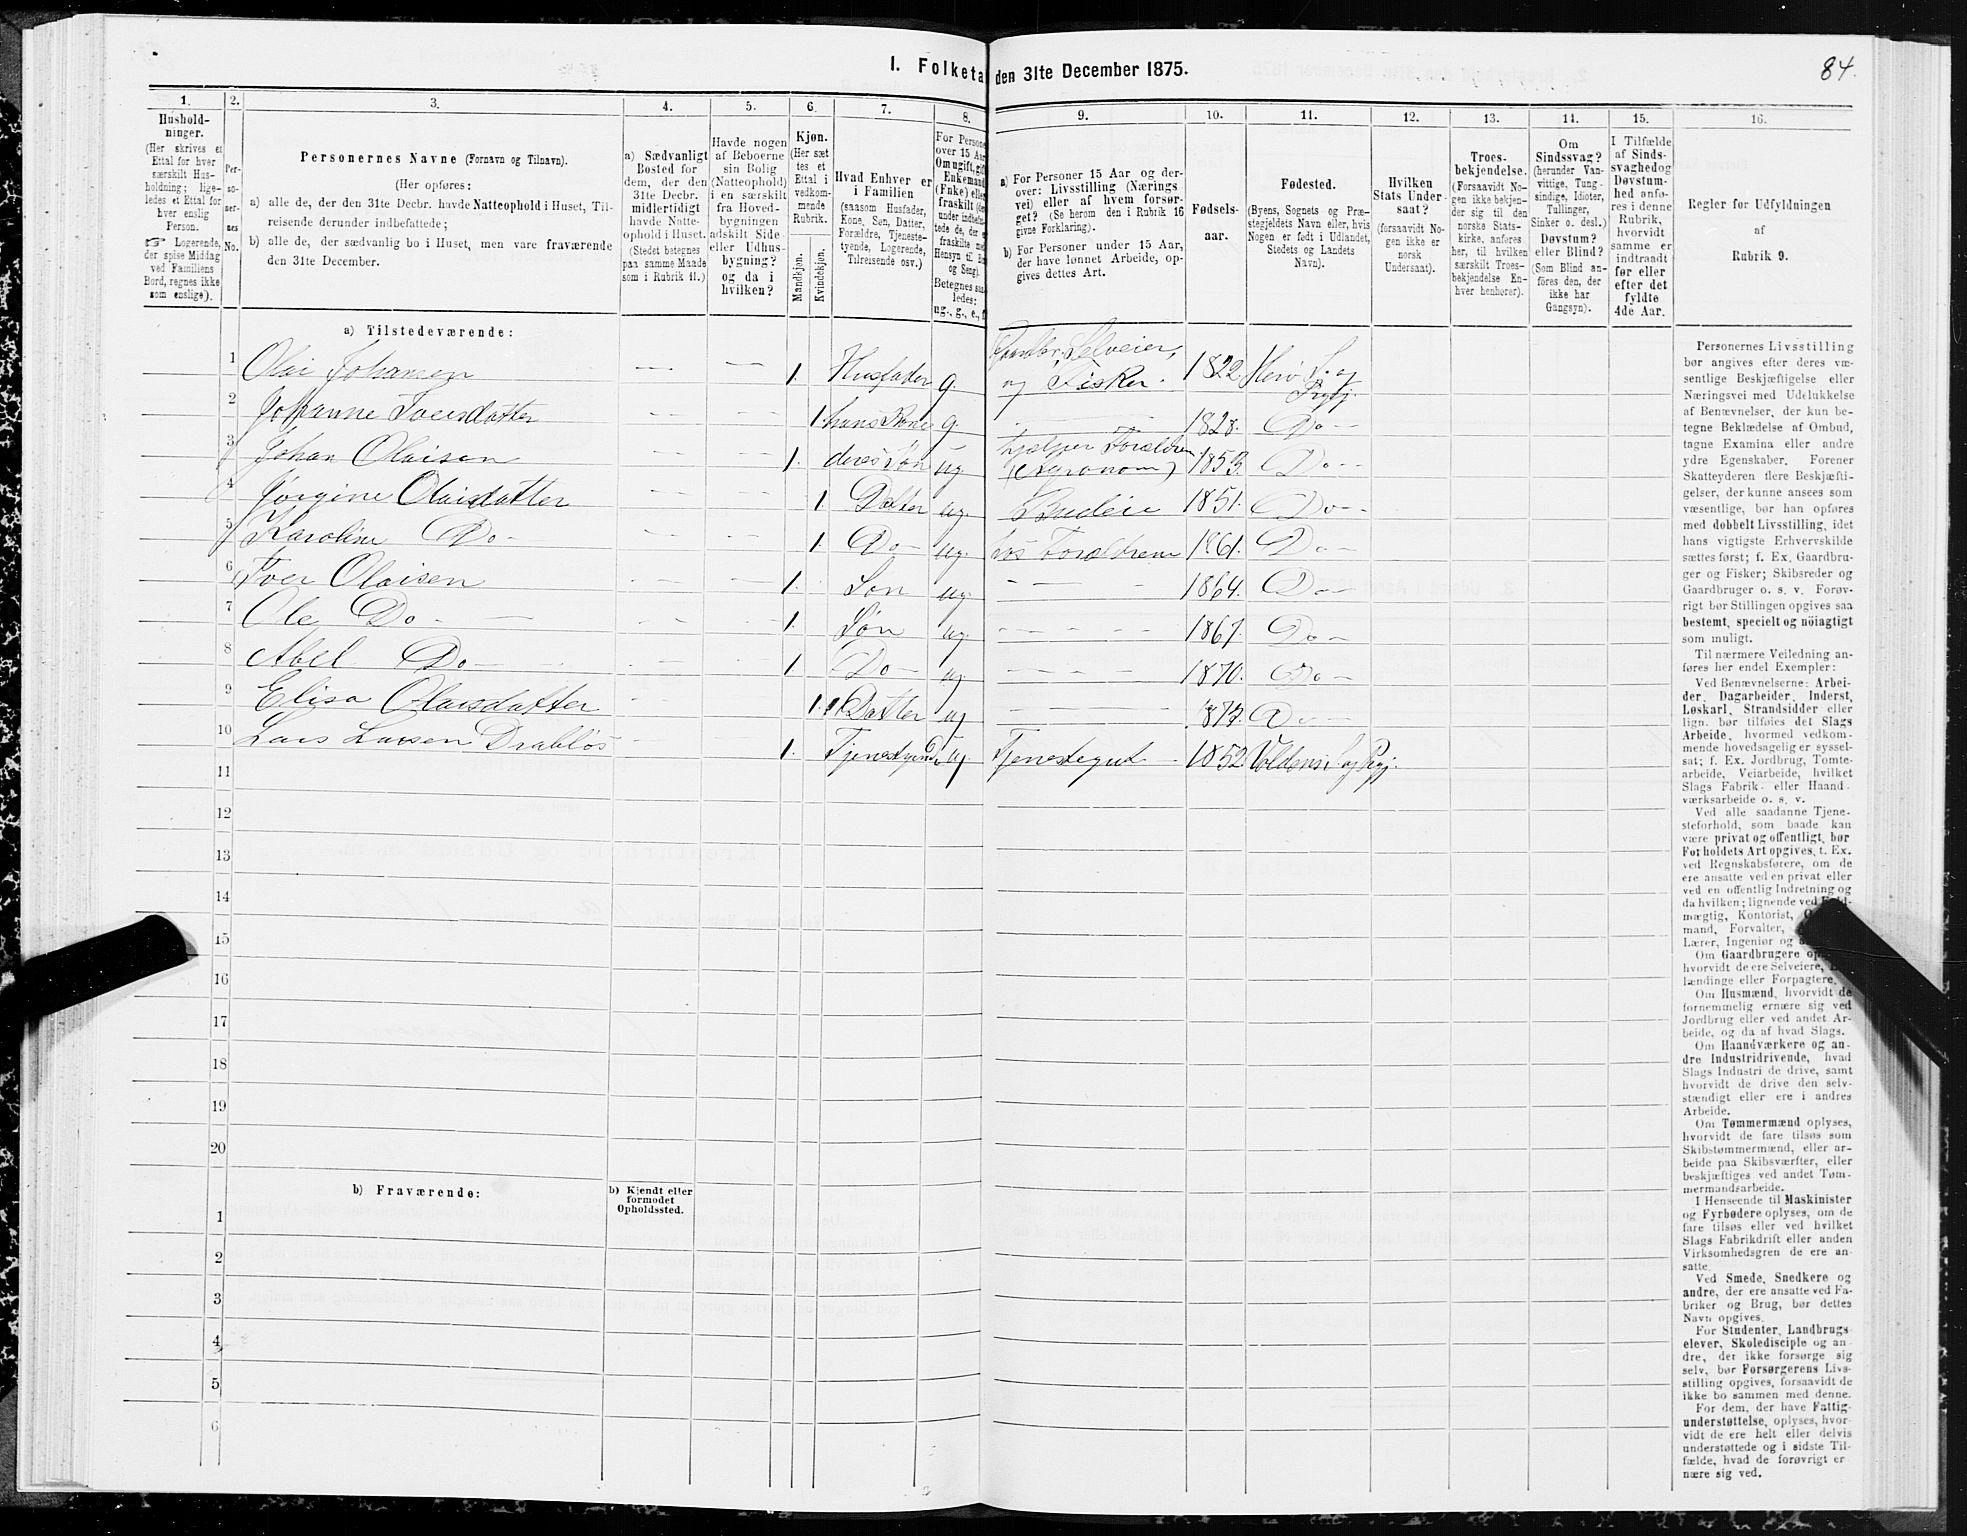 84.
I. Folketa den 31te December 1875.
1. 2. 3. 4. 5. 6. 7. 8. 9. 10. 11. 12. 13. 14. 15. 16.
Hushold-
ninger.
(Her skrives et
Ettal for hver
særskilt Hus-
holdning; lige-
ledes et Ettal for
hver enslig
Person.
☞ Logerende,
der spise Middag
ved Familiens
Bord, regnes ikke
som enslige).
Per-
so-
ner-
nes
No.
Personernes Navne (Fornavn og Tilnavn).
(Her opføres:
a) alle de, der den 31te Decbr. havde Natteophold i Huset, Til-
reisende derunder indbefattede;
b) alle de, der sædvanlig bo i Huset, men vare fraværende
den 31te December.
a) Sædvanligt
Bosted for
dem, der den
31te Decbr.
midlertidigt
havde Natte-
ophold i Huset.
(Stedet betegnes
paa samme Maade
som i Rubrik 11.)
Havde nogen
af Beboerne
sin Bolig
(Natteophold)
i en særskilt
fra Hoved-
bygningen
adskilt Side-
eller Udhus-
bygning?
og da i
hvilken?
Kjøn.
(Her sæt
tes et
Ettal i
vedkom-
mende
Rubrik.
Mandekjøn.
Kvindekjøn.
Hvad Enhver er
i Familien
(saasom Husfader,
Kone, Søn, Datter,
Forældre, Tjeneste-
tyende, Logerende,
Tilreisende osv.)
For Persone
over 15 Aa
Om ugift, gif
Enkemand
(Enke) elle
fraskilt (de
under indbefat
tede de, der e
fraskilte me
Hensyn til Bo
og Seng).
Betegnes saa
ledes:
ug., g., e., f.
a) For Personer 15 Aar og der-
over: Livsstilling (Nærings
vei) eller af hvem forsør-
get? (Se herom den i Rubrik 16
givne Forklaring).
b) For Personer under 15 Aar,
der have lønnet Arbeide, op-
gives dettes Art.
Fødsels-
aar.
Fødested.
(Byens, Sognets og Præ-
stegjeldets Navn eller, hvis
Nogen er født i Udlandet,
Stedets og Landets
Navn).
Hvilken
Stats Under-
saat?
(forsaavidt No-
gen ikke er
norsk
Undersaat).
Troes-
bekjendelse.
(Forsaavidt No-
gen ikke bekjen-
der sig til den
norske Stats-
kirke, anføres
her, til hvilken
særskilt Troes-
bekjendelse En-
hver henhører).
Om
Sindssvag?
(herunder Van-
vittige, Tung-
sindige, Idioter,
Tullinger,
Sinker o. desl.)
Døvstum?
eller Blind?
(Som Blind an-
føres den, der
ikke har
Gangsyn).
I Tilfælde
af Sinds-
svaghedog
Døvstum-
hed anfø-
res i denne
Rubrik,
hvorvidt
samme er
indtraadt
før eller
efter det
fyldte
4de Aar.
Regler for Udfyldningen
af
Rubrik 9.
a) Tilstedeværende:
1 Olai Johansen 1. Husfader g. Gaardbr. Selveier, og Fisker. 1822. Herö S. og Prgj.
2 Johanne Iversdatter 1. hans Kone g. 1828. Do
3 Johan Olaisen 1. deres Søn ug hjelper Forældren (Agronom) 1853. Do
4 Jørgine Olaisdatter 1. Datter ug. Budeie 1851. Do
5 Karoline Do 1. Do ug. hos Forældrene 1861. Do
6 Iver Olaisen 1. Søn ug. 1864. Do
7 Ole Do 1. Søn ug. 1867. Do
8 Abel Do 1 Do ug 1870. Do
9 Elisa Olaisdatter 1. Datter ug Do
10 Lars Larsen Drabløs 1. ug. Tjenestegut 1852 Voldens S og Prgj.
11
12
13
14
15
16
17
18
19
20
b) Fraværende:
b) Kjendt eller
formodet
Opholdssted.
1
2
3
4
5
6
Personernes Livsstilling
bør angives efter deres væ-
sentlige Beskjæftigelse eller
Næringsvei med Udelukkelse
af Benævnelser, der kun be-
tegne Beklædelse af Ombud,
tagne Examina eller andre
ydre Egenskaber. Forener
Skatteyderen flere Beskjæfti-
gelser, der kunne ansees som
væsentlige, bør han opføres
med dobbelt Livsstilling, idet
hans vigtigste Erhvervskilde
sættes først; f. Ex. Gaardbru-
ger og Fisker; Skibsreder og
Gaardbruger o. s. v. Forøv-
rigt bør Stillingen opgives saa
bestemt, specielt og nöiagtigt
som muligt.
Til nærmere Veiledning an-
føres her endel Exempler:
Ved Benævnelserne: Arbei-
der, Dagarbeider, Inderst,
Løskarl, Strandsidder eller
lign. bør tilføies det Slags
Arbeide, hvormed vedkom-
mende hovedsagelig er syssel-
sat; f. Ex. Jordbrug, Tomte-
arbeide, Veiarbeide, hvilket
Slags Fabrik- eller Haand-
værksarbeide o. s. v.
Ved alle saadanne Tjene-
steforhold, som baade kan
være privat og offentligt, bør
Forholdets Art opgives, t. Ex.
ved Regnskabsførere, om de
ere ansatte ved en privat eller
ved en offentlig Indretning og
da hvilken; lignende ved
mægtig, Kontorist,
mand, Forvalter,
Lærer, Ingeniør og
Om Gaardbrugere
hvorvidt de ere Selveiere,
lændinge eller Forpagtere.
Om Husmænd, hvorvidt de
fornemmelig ernære sig ved
Jordbrug eller ved andet Ar-
beide, og da af hvad Slags.
Om Haandværkere og an-
dre Industridrivende, hvad
Slags Industri de drive, samt
hvorvidt de drive den selv-
stændigt eller ere i andres
Arbeide.
Om Tømmermænd oplyses,
hvorvidt de fare tilsøs som
Skibstømmermænd, eller ar-
beide paa Skibsværfter, eller
beskjæftiges ved andet Tøm-
mermandsarbeide.
I Henseende til Maskinister
og Fyrbødere oplyses, om de
fare tilsøs eller ved hvilket
Slags Fabrikdrift eller anden
Virksomhedsgren de ere an-
satte.
Ved Smede, Snedkere og
andre, der ere ansatte ved Fa-
briker og Brug, bør dettes
Navn opgives.
For Studenter, Landbrugs-
elever, Skoledisciple og an-
dre, der ikke forsørge sig
selv, bør Forsørgerens Livs-
stilling opgives, forsaavidt de
ikke bo sammen med denne.
For dem, der have Fattig-
understøttelse, oplyses, hvor-
vidt de ere helt eller delvis
understøttede og i sidste Til-
fælde, hvad de forøvrigt er
nære sig ved.